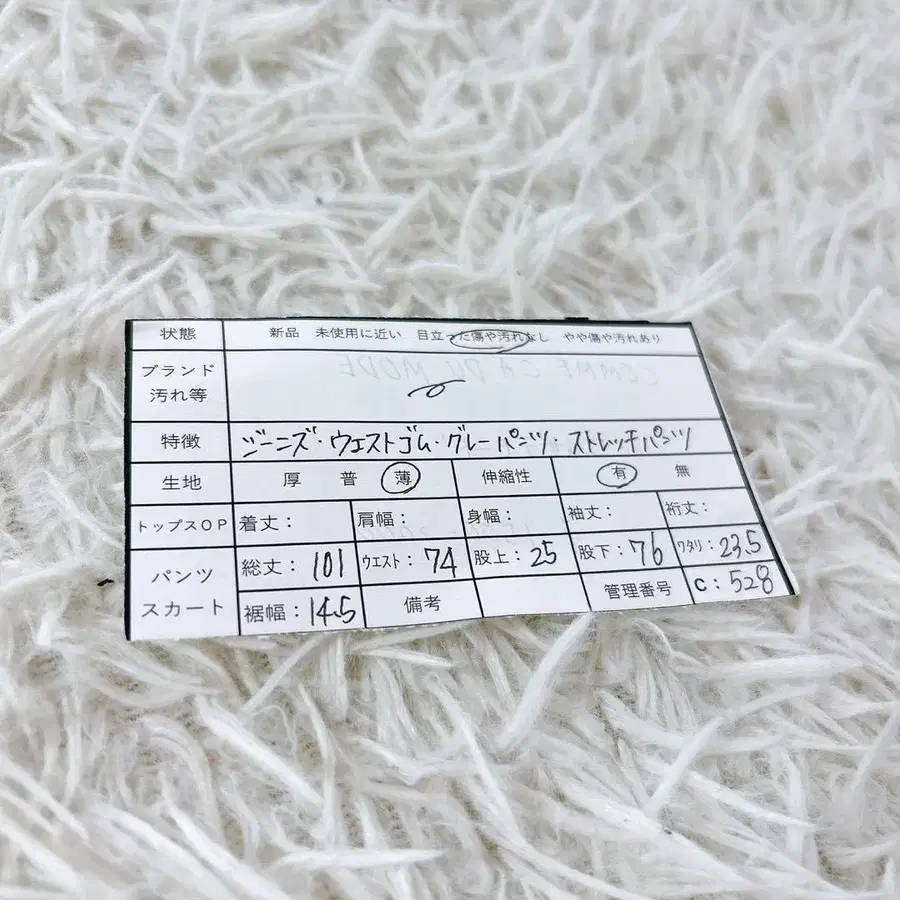 状態 新品 未使用に近い 目立った傷や汚れなし やや傷や汚れあり
ブランド
汚れ等
特徴 ジーニズ・ウエストゴム・グレーパンツ・ストレッチパンツ
生地 厚 普 薄 伸縮性 有 無
トップスOP 着丈: 肩幅: 身幅: 袖丈: 裄丈:
パンツ
スカート
総丈:101 ウエスト:74 股上:25 股下:76 ワタリ:23.5
裾幅:14.5 備考 管理番号 C:528